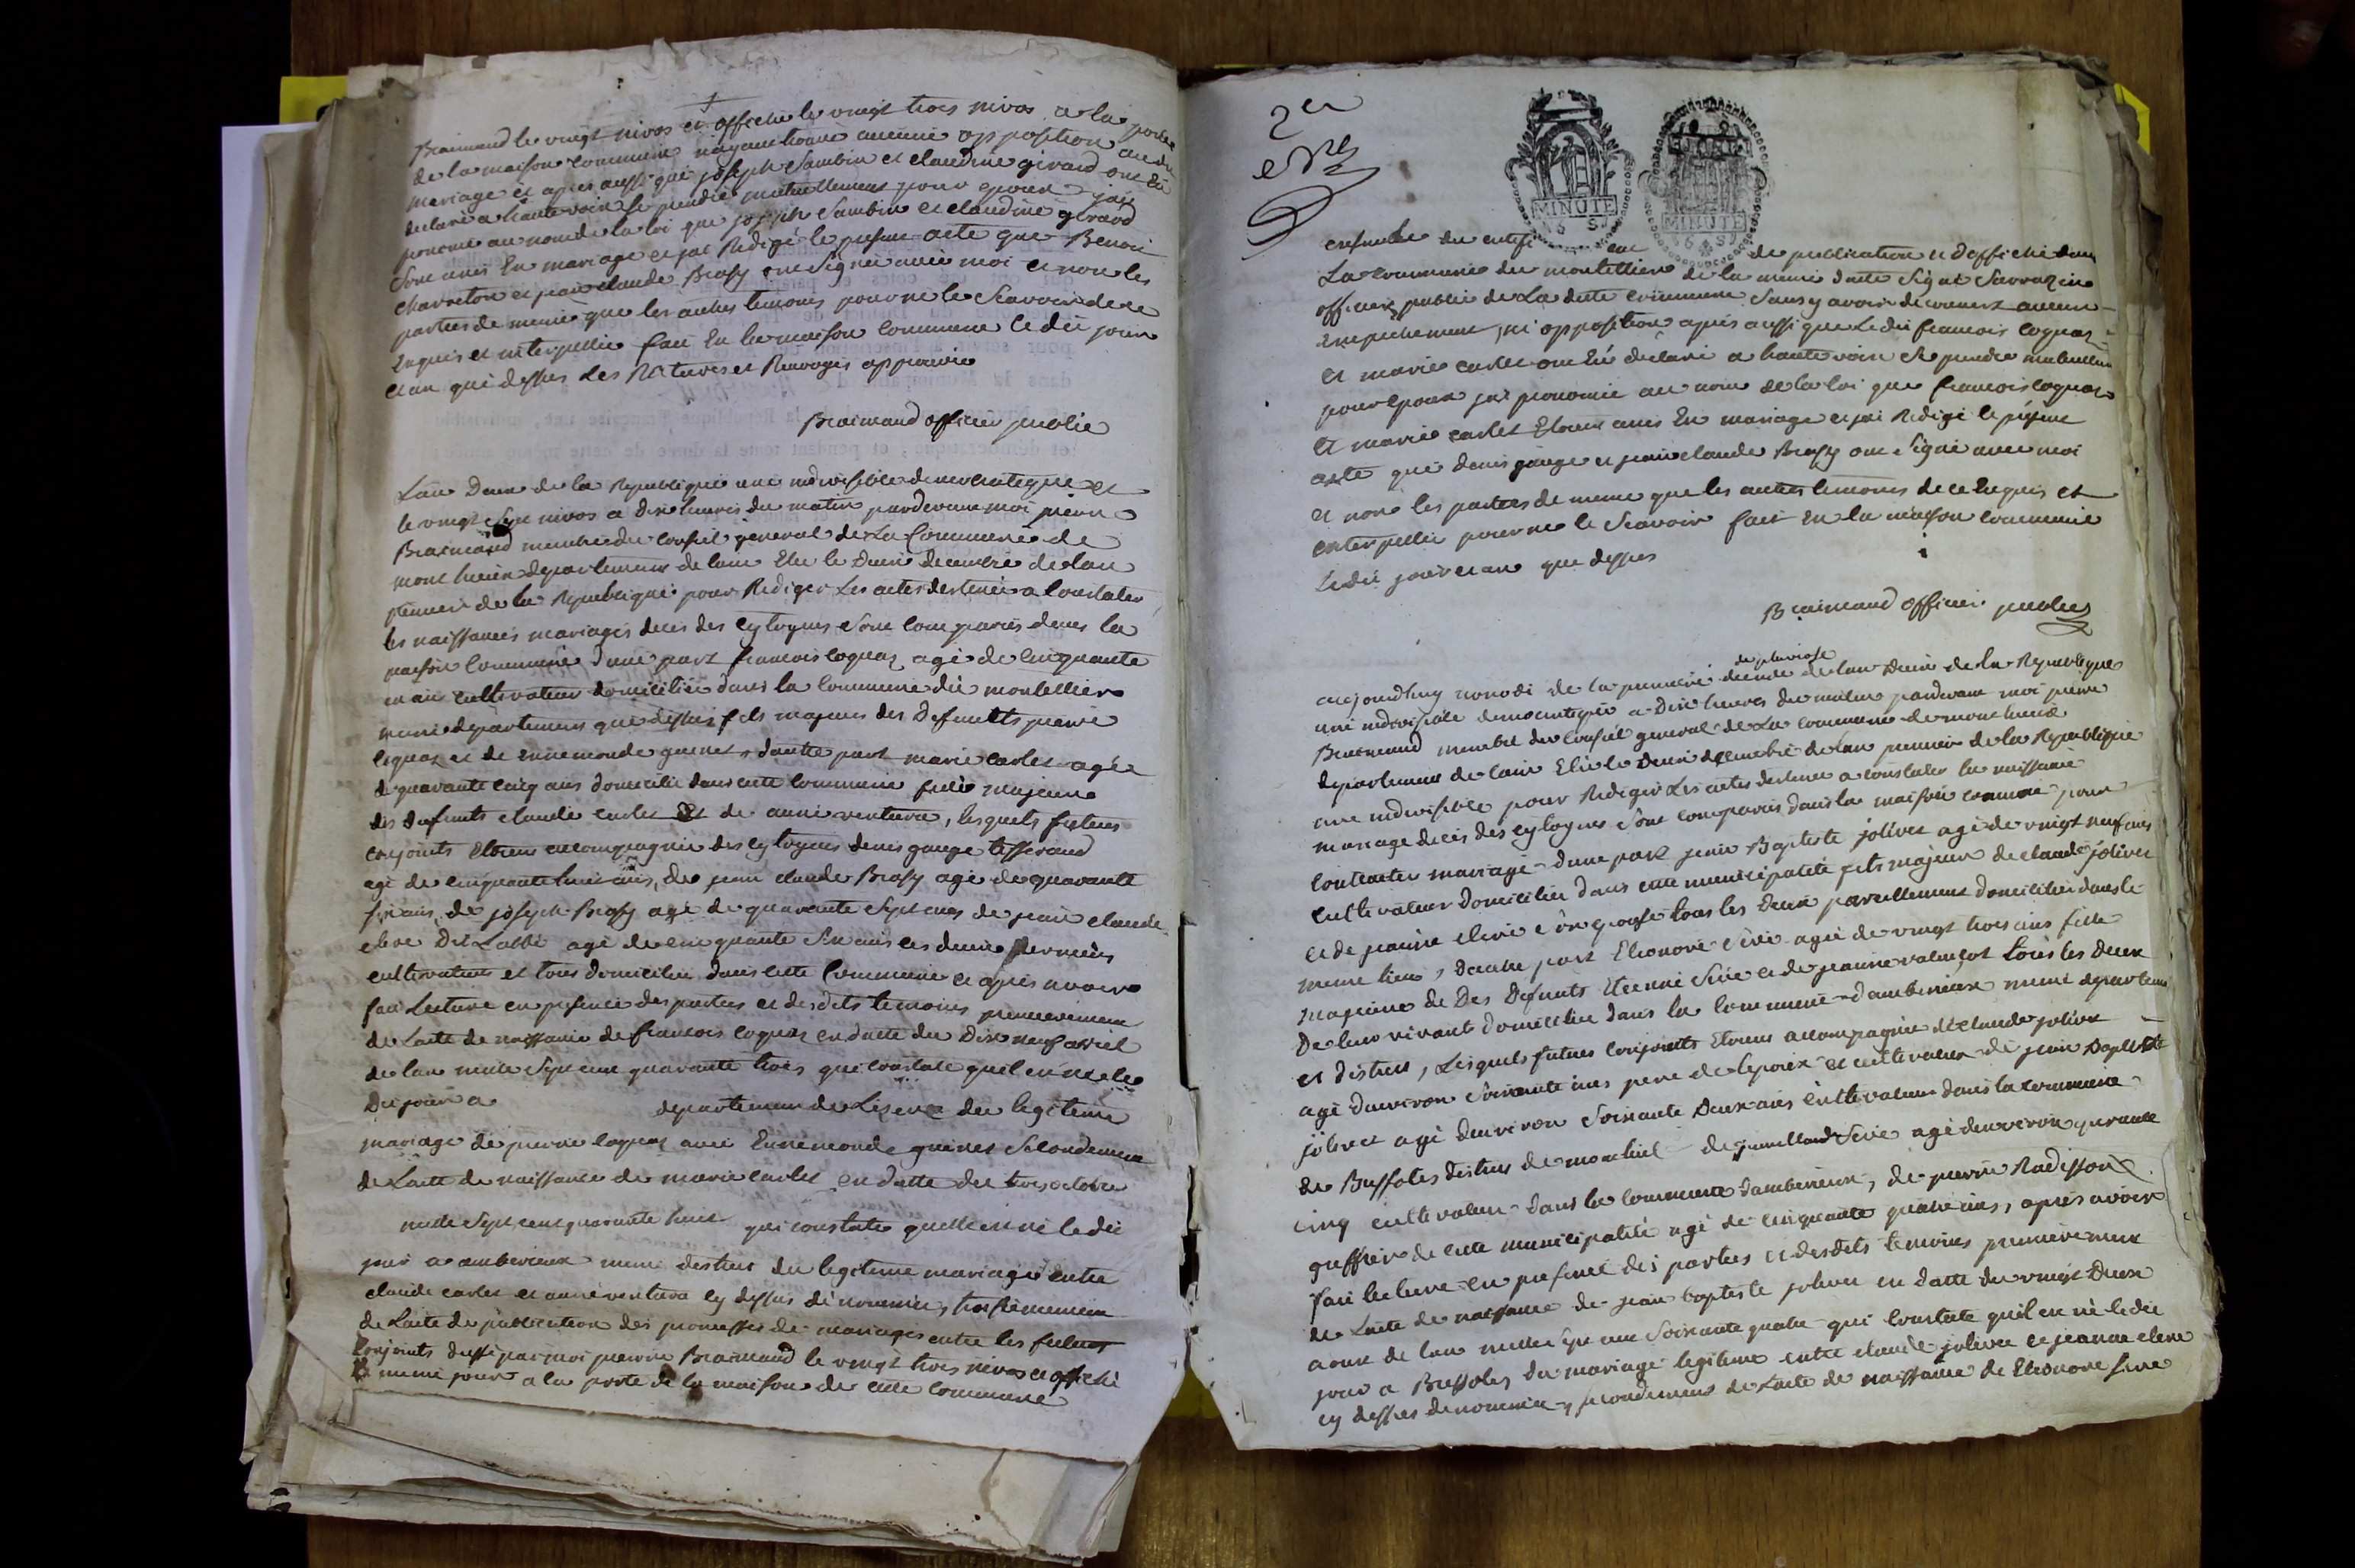 Braimand le vingt nivos et affiché le vingt trois nivos a la porte
de la maison commune nayant trouvé aucune opposition au dit
mariage et apres aussi que joseph Sambin et claudine girard ont été
declaré a haute voix se prendre mutuellement pour epoux jai
prononcé au nom de la loi que joseph Sambin et claudine girard
sont unis en mariage et jai Redigé le present acte que Benoit
charreton et jean claude Brasy ont signé avec moi et non les
parties de meme que les autres temoins pour ne le scavoir de ce
Enquis et interpellé fait En la maison commune le dit jour
et an que dessus les Ratures et Renvois approuvé
Braimand officier public
Lan Deux de la Republique une indivisible democratique et
le vingt sept nivos a Dix heures du matin pardevant moi pierre
Braimand membre du conseil general de La Commune de
mont luciere departement de lain Elu le Deux decembre de lan
premier de la Republique pour Rediger Les actes destinés a Constater
les naissances mariages deces des cytoyens sont comparus dans la
maison commune d'une part francois coquaz agé de cinquante
un an cultivateur domicilié dans la commune du montellier
meme departement que dessus fils majeur des Defunts pierre
coquaz et de Ennemonde guenet, dautre part marie carlet agée
de quarante cinq ans domicilié dans cette commune fille majeure
des defunts claude carlet et de anne venture, lesquels futeurs
conjoints Etoient accompagnée des cytoyens denis gauge tisserand
agé de cinquante huit ans, de jean claude Brasy agé de quarante
six ans, de joseph Brasy agé de quarante sept ans de jean claude
clere Dit Labbé agé de cinquante six ans ces deux derniers
cultivateurs et tous domiciliés dans cette Commune et apres avoir
fait Lecture en presence des parties et desdits temoins premierement
de Lacte de naissance de francois coquaz en datte du Dix neuf avril
de lan mille sept cent quarante trois qui constate quil en né le
Dit jour a departement de Lisere du legitime
mariage de pierre coquaz avec Ennemonde guenet Secondement
de Lacte de naissance de marie carlet en datte du trois octobre
mille sept cent quarante huit qui constate quelle en né le dit
jour a amberieux meme destrict du legitime mariage entre
claude carlet et anne venture cy dessus dénommés, troisiemement
de Lacte de publication des promesses de mariages entre les futurs
Conjoints dressé par moi pierre Braimand le vingt trois nivos et affiché
le meme jour a la porte de la maison de cette commune
2e
MINUTE
MINUTE
ensemble du certificat de publication et d'affiche dans
La commune du montellier de la meme datte signé Sarrazin
officier public de La dite commune sans y avoir decouvert aucun
empechement, ni opposition apres aussi que Ledit francois coquaz
et marie carlet ont été declaré a haute voix se prendre mutuellement
pour epoux jai prononcé au nom de la loi que francois coquaz
et marie carlet Etoient unis En mariage et jai Redigé le present
acte que denis gauge et jean claude Brasy ont signé avec moi
et non les parties de meme que les autres temoins de ce Enquis et
interpellé pour ne le scavoir fait En la maison commune
Ledit jour et an que dessus
Braimand officier public
de pluviose
aujourdhuy nonodi de la premiere decade de lan Deux de la Republique
une indivisible democratique a Dix heures du matin pardevant moi pierre
Braimand membre du conseil general de La commune de mont luciere
departement de lain Elu le Deux decembre de lan premier de la Republique
une indivisible pour Rediger Les actes destinés a constater la naissance
mariage deces des cytoyens sont comparus dans la maison commune pour
Contracter mariage d'une part jean Baptiste jolivet agé de vingt neuf ans
cultivateur Domicilié dans cette municipalité fils majeur de claude jolivet
et de jeanne clere son epouse tous les deux pareillement domiciliés dans le
meme lieu, dautre part Eleonore Sève agée de vingt trois ans fille
majeure de Des Defunts Etienne Seve et de jeanne valençot tous les deux
De leur vivant domiciliés dans la commune d'amberieux meme departement
et district, Lesquels futurs conjoints Etoient accompagnés de claude jolivet
agé denviron soixante ans pere de lepoux et cultivateur de jean Baptiste
jolivet agé denviron soixante Deux ans cultivateur dans la commune
de Bussoles district de montluel de guillaud Seve agé denviron quarante
cinq cultivateur dans la commune damberieux, de pierre Radisson
greffier de cette municipalité agé de cinquante quatre ans, apres avoir
fait lecture en presence des parties et desdits temoins premierement
de Lacte de naissance de jean baptiste jolivet en datte du vingt Deux
aout de lan mille sept cent soixante quatre qui constate quil en né le dit
jour a Bussoles du mariage legitime entre claude jolivet et jeanne clere
cy dessus denommés, secondement de Lacte de naissance de Eleonore seve